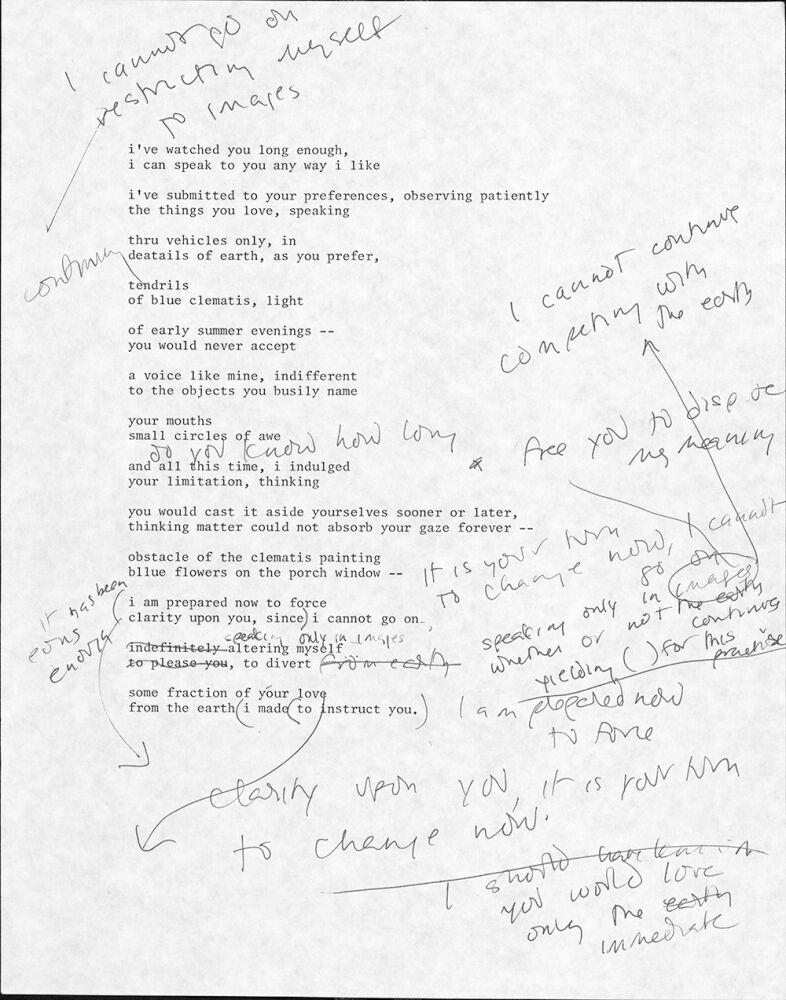 I cannot go on
restricting myself
to images
i've watched you long enough,
i can speak to you any way i like
i've submitted to your preferences, observing patiently
the things you love, speaking
thru vehicles only, in
deatails of earth, as you prefer,
continuing
tendrils
of blue clematis, light
of early summer evenings --
you would never accept
a voice like mine, indifferent
to the objects you busily name
I cannot continue
competing with
the earth
your mouths
small circles of awe
do you know how long
and all this time, i indulged
your limitation, thinking
* free you to dispose
my meaning
you would cast it aside yourselves sooner or later,
thinking matter could not absorb your gaze forever --
obstacle of the clematis painting
bllue flowers on the porch window --
It is your turn
to change now, I cannot
go on
speaking only in images
whether or not the earth
continues
yielding ( ) for this
practise
it has been
eons
enough
(i am prepared now to force
clarity upon you, since) i cannot go on
speaking only in images
indefinitely altering myself
to please you, to divert from earth
some fraction of your love
from the earth (i made (to instruct you.)
I am prepared now
to force
clarity upon you, it is your turn
to change now.
I should have known
you would love
only the earth
immediate